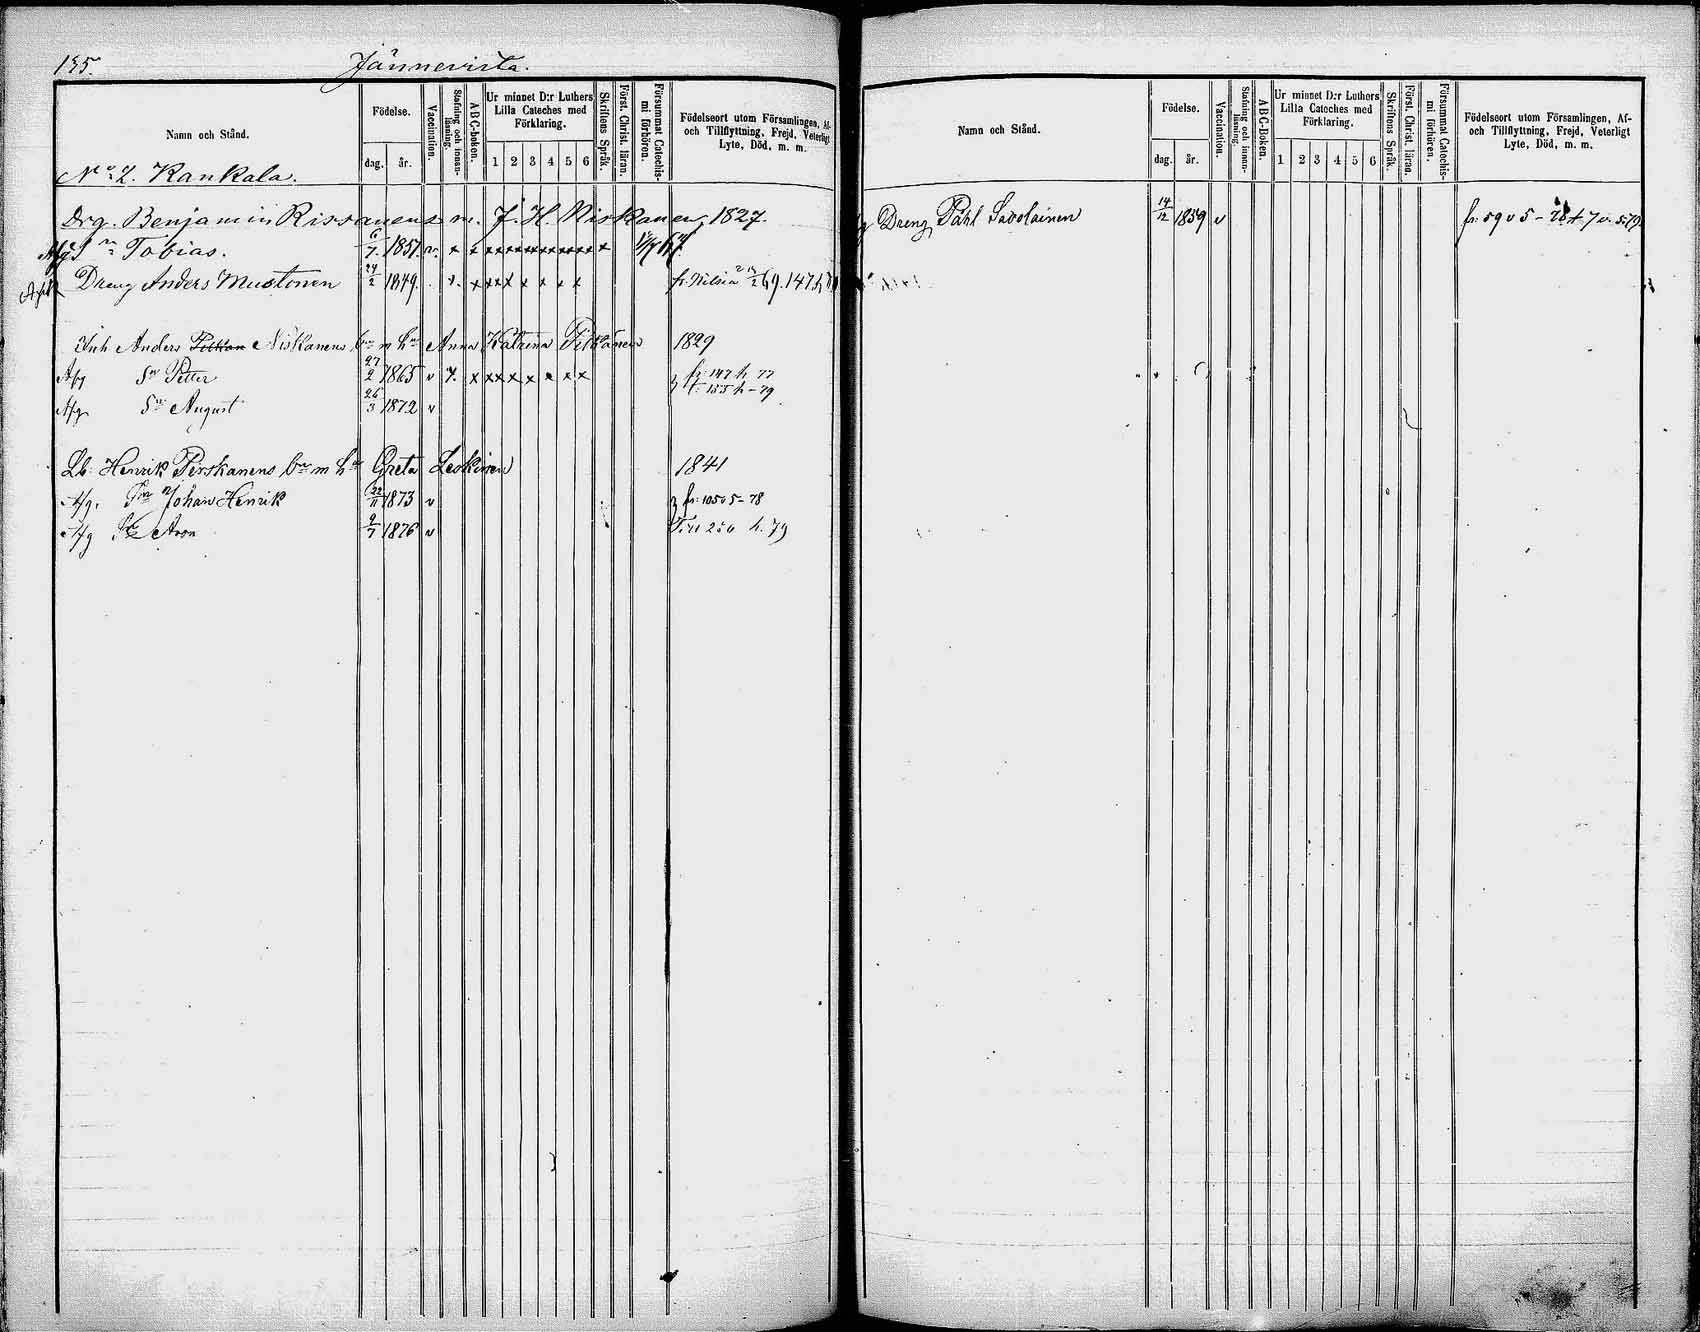 195.
Jännevirta.
Namn och Stånd.
Födelse.
dag. år.
Vaccination.
Stafning och innanläsning.
ABC-boken.
Ur minnet D:r Luthers Lilla Cateches med Förklaring.
1 2 3 4 5 6
Skriftens Språk.
Först. Christ. läran.
Försummat Catechismi förhören.
Födelseort utom Församlingen, Af- och Tillflyttning, Frejd, Veterligt Lyte, Död, m. m.
No 2. Kankala.
Drg. Benjamin Rissanens m. J. H. Niskanen, 1827.
Afg Sn Tobias. 6/7. 1857. v. x x xxxxxxxxxxx x
Dreng Anders Mustonen 24/2 1849. x. x xxx x x x x fr. Nilsiä 69. 147
Inh Anders Pitkän Niskanens br m hu Anna Katrina Pitkänen 1829
Afg Sn Petter 27/2 1865 v x. x xxx x x x x fr. 147 h 77
Afg Sn August 26/3 1872 v t. 155 h - 79
Lb. Henrik Perskanens br m hu Greta Leskinen 1841
Afg. Sn Johan Henrik 22/11 1873 v fr. 105 v 5 - 78
Afg Sn Aron 9/7 1876 v Till 250 h. 79
Namn och Stånd.
Födelse.
dag. år.
Vaccination.
Stafning och innanläsning.
ABC-Boken.
Ur minnet D:r Luthers Lilla Cateches med Förklaring.
1 2 3 4 5 6
Skriftens Språk.
Först. Christ. läran.
Försummat Catechismi förhören.
Födelseort utom Församlingen, Af- och Tillflyttning, Frejd, Veterligt Lyte, Död, m. m.
Dreng Påhl Savolainen 14/12 1859 v fr. 59 v 5 - 78 t 7 v. 5. 79